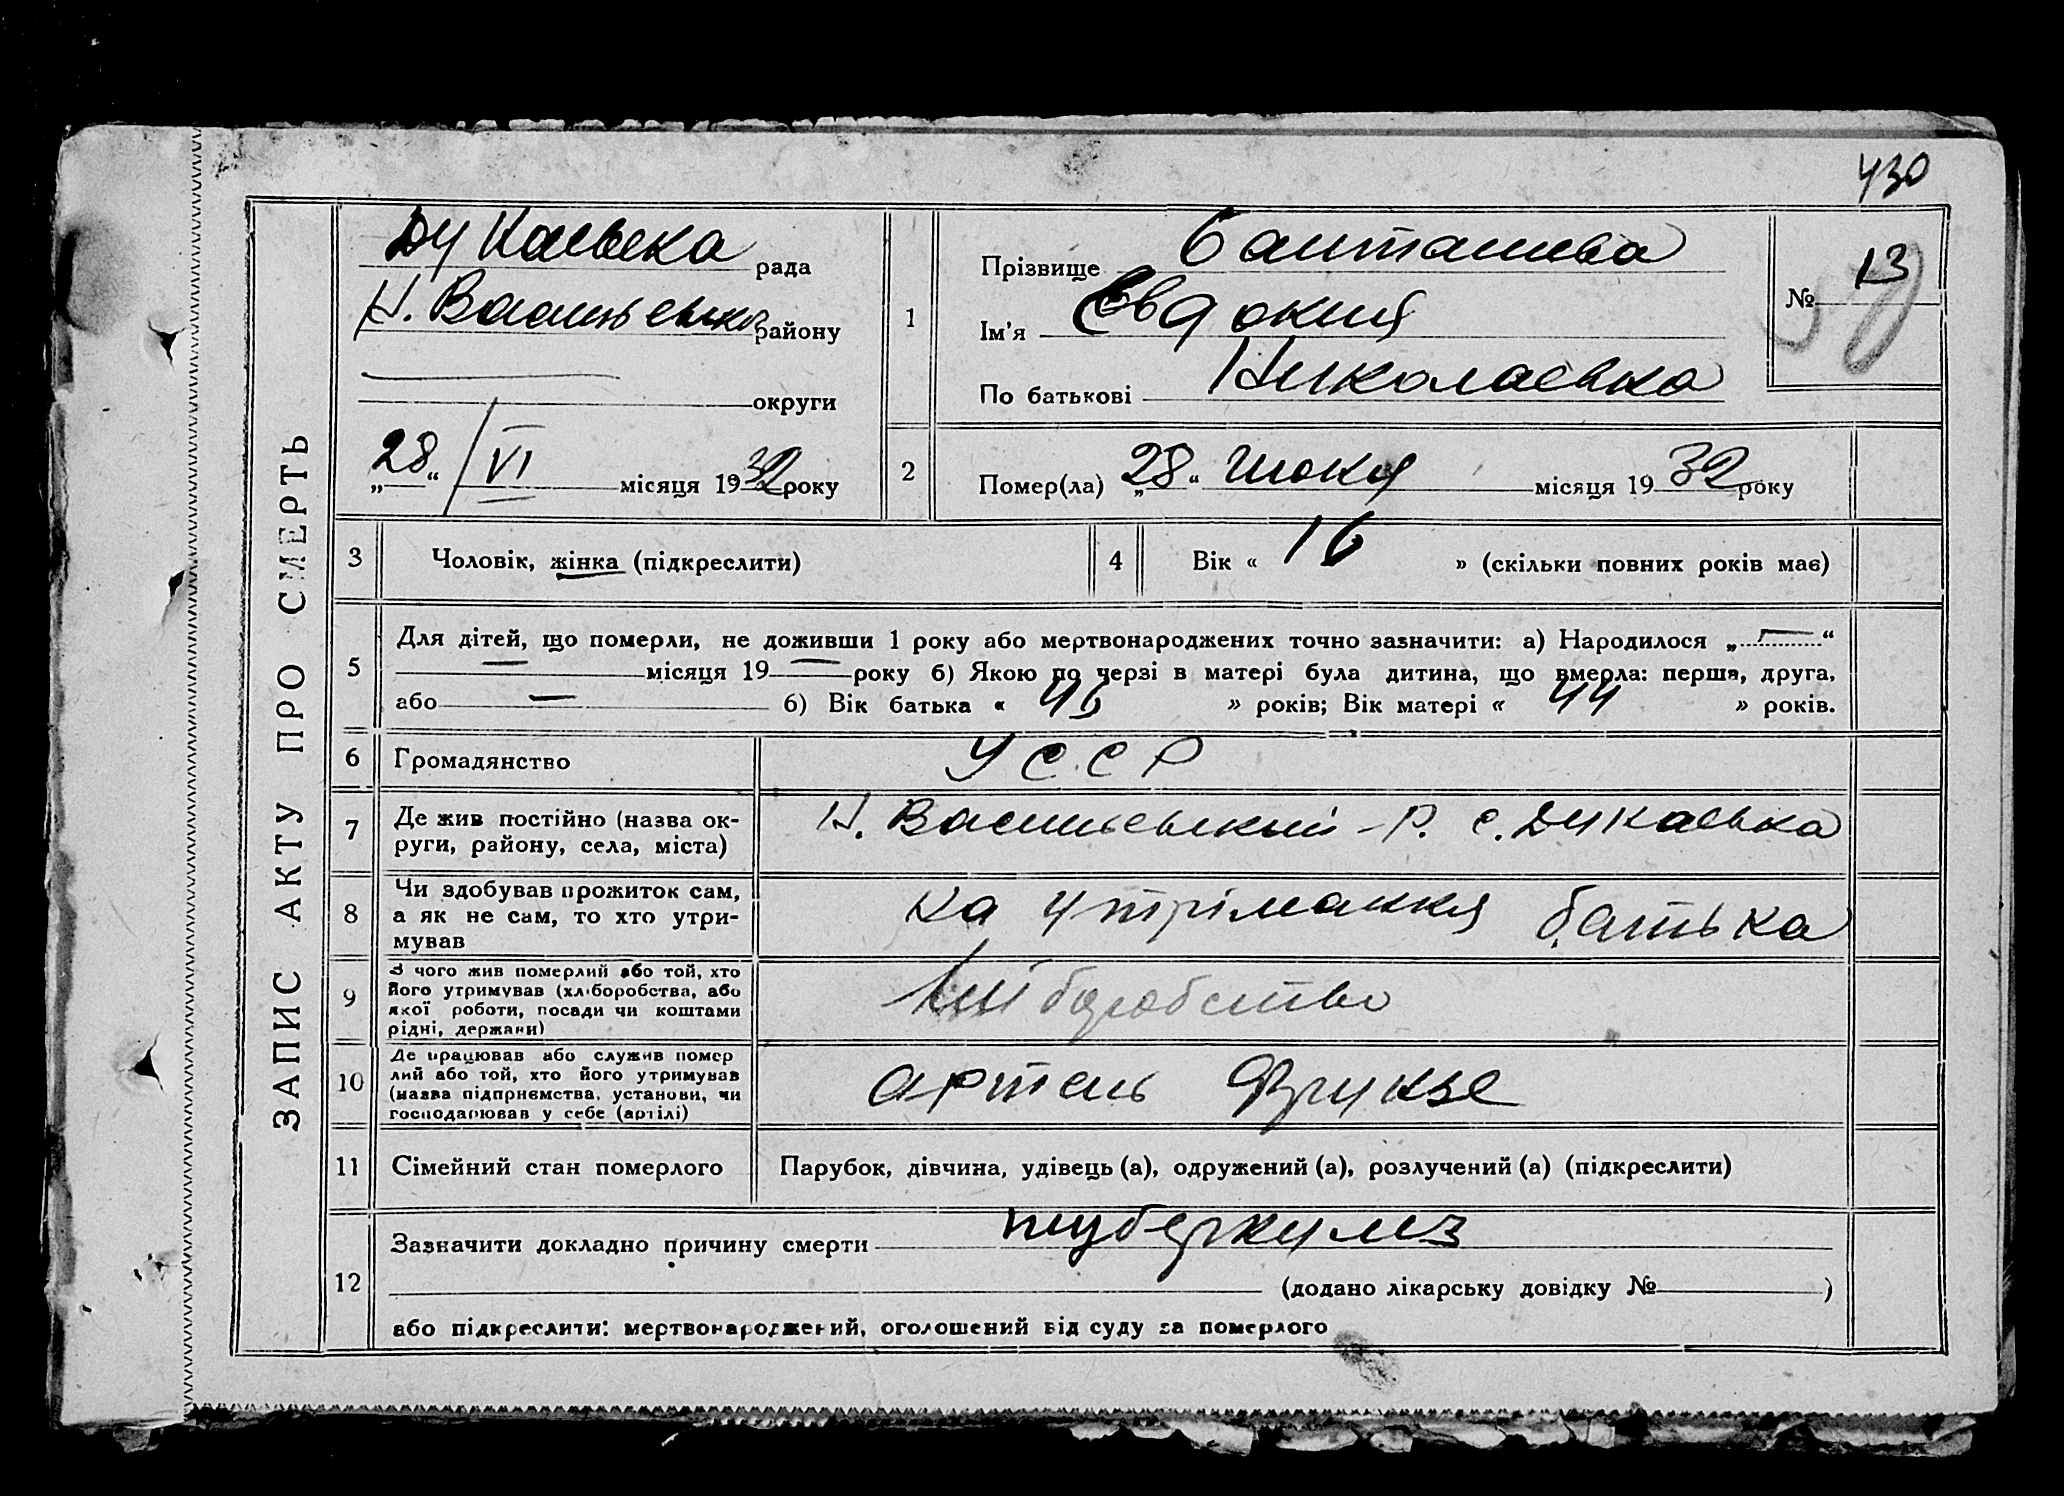 430
ЗАПИС АКТУ ПРО СМЕРТЬ
Дунаевска рада
Н. Васильевского району
округи
„28“ / VI місяця 1932 року
1
Прізвище
Ім'я Евдокия
По батькові Николаевна
№ 13
2
Помер(ла) „28“ июня місяця 1932 року
3
Чоловік, жінка (підкреслити)
4
Вік « 16 » (скільки повних років має)
5
Для дітей, що померли, не доживши 1 року або мертвонароджених точно зазначити: а) Народилося „—“
— місяця 19— року б) Якою по черзі в матері була дитина, що вмерла: перша, друга,
або — б) Вік батька « 46 » років; Вік матері « 44 » років.
6
Громадянство
УССР
7
Де жив постійно (назва ок-
руги, району, села, міста)
Н. Васильевский - р. с. Дунаевка
8
Чи здобував прожиток сам,
а як не сам, то хто утри-
мував
на утрімання батька
9
З чого жив померлий або той, хто
його утримував (хліборобства, або
якої роботи, посади чи коштами
рідні, держави)
хліборобство
10
Де працював або служив помер
лий або той, хто його утримував
(назва підприємства, установи, чи
господарював у себе (артілі)
артель Фрунзе
11
Сімейний стан померлого
Парубок, дівчина, удівець (а), одружений (а), розлучений (а) (підкреслити)
12
Зазначити докладно причину смерти туберкульз
(додано лікарську довідку № )
або підкреслити: мертвонароджений, оголошений від суду за померлого